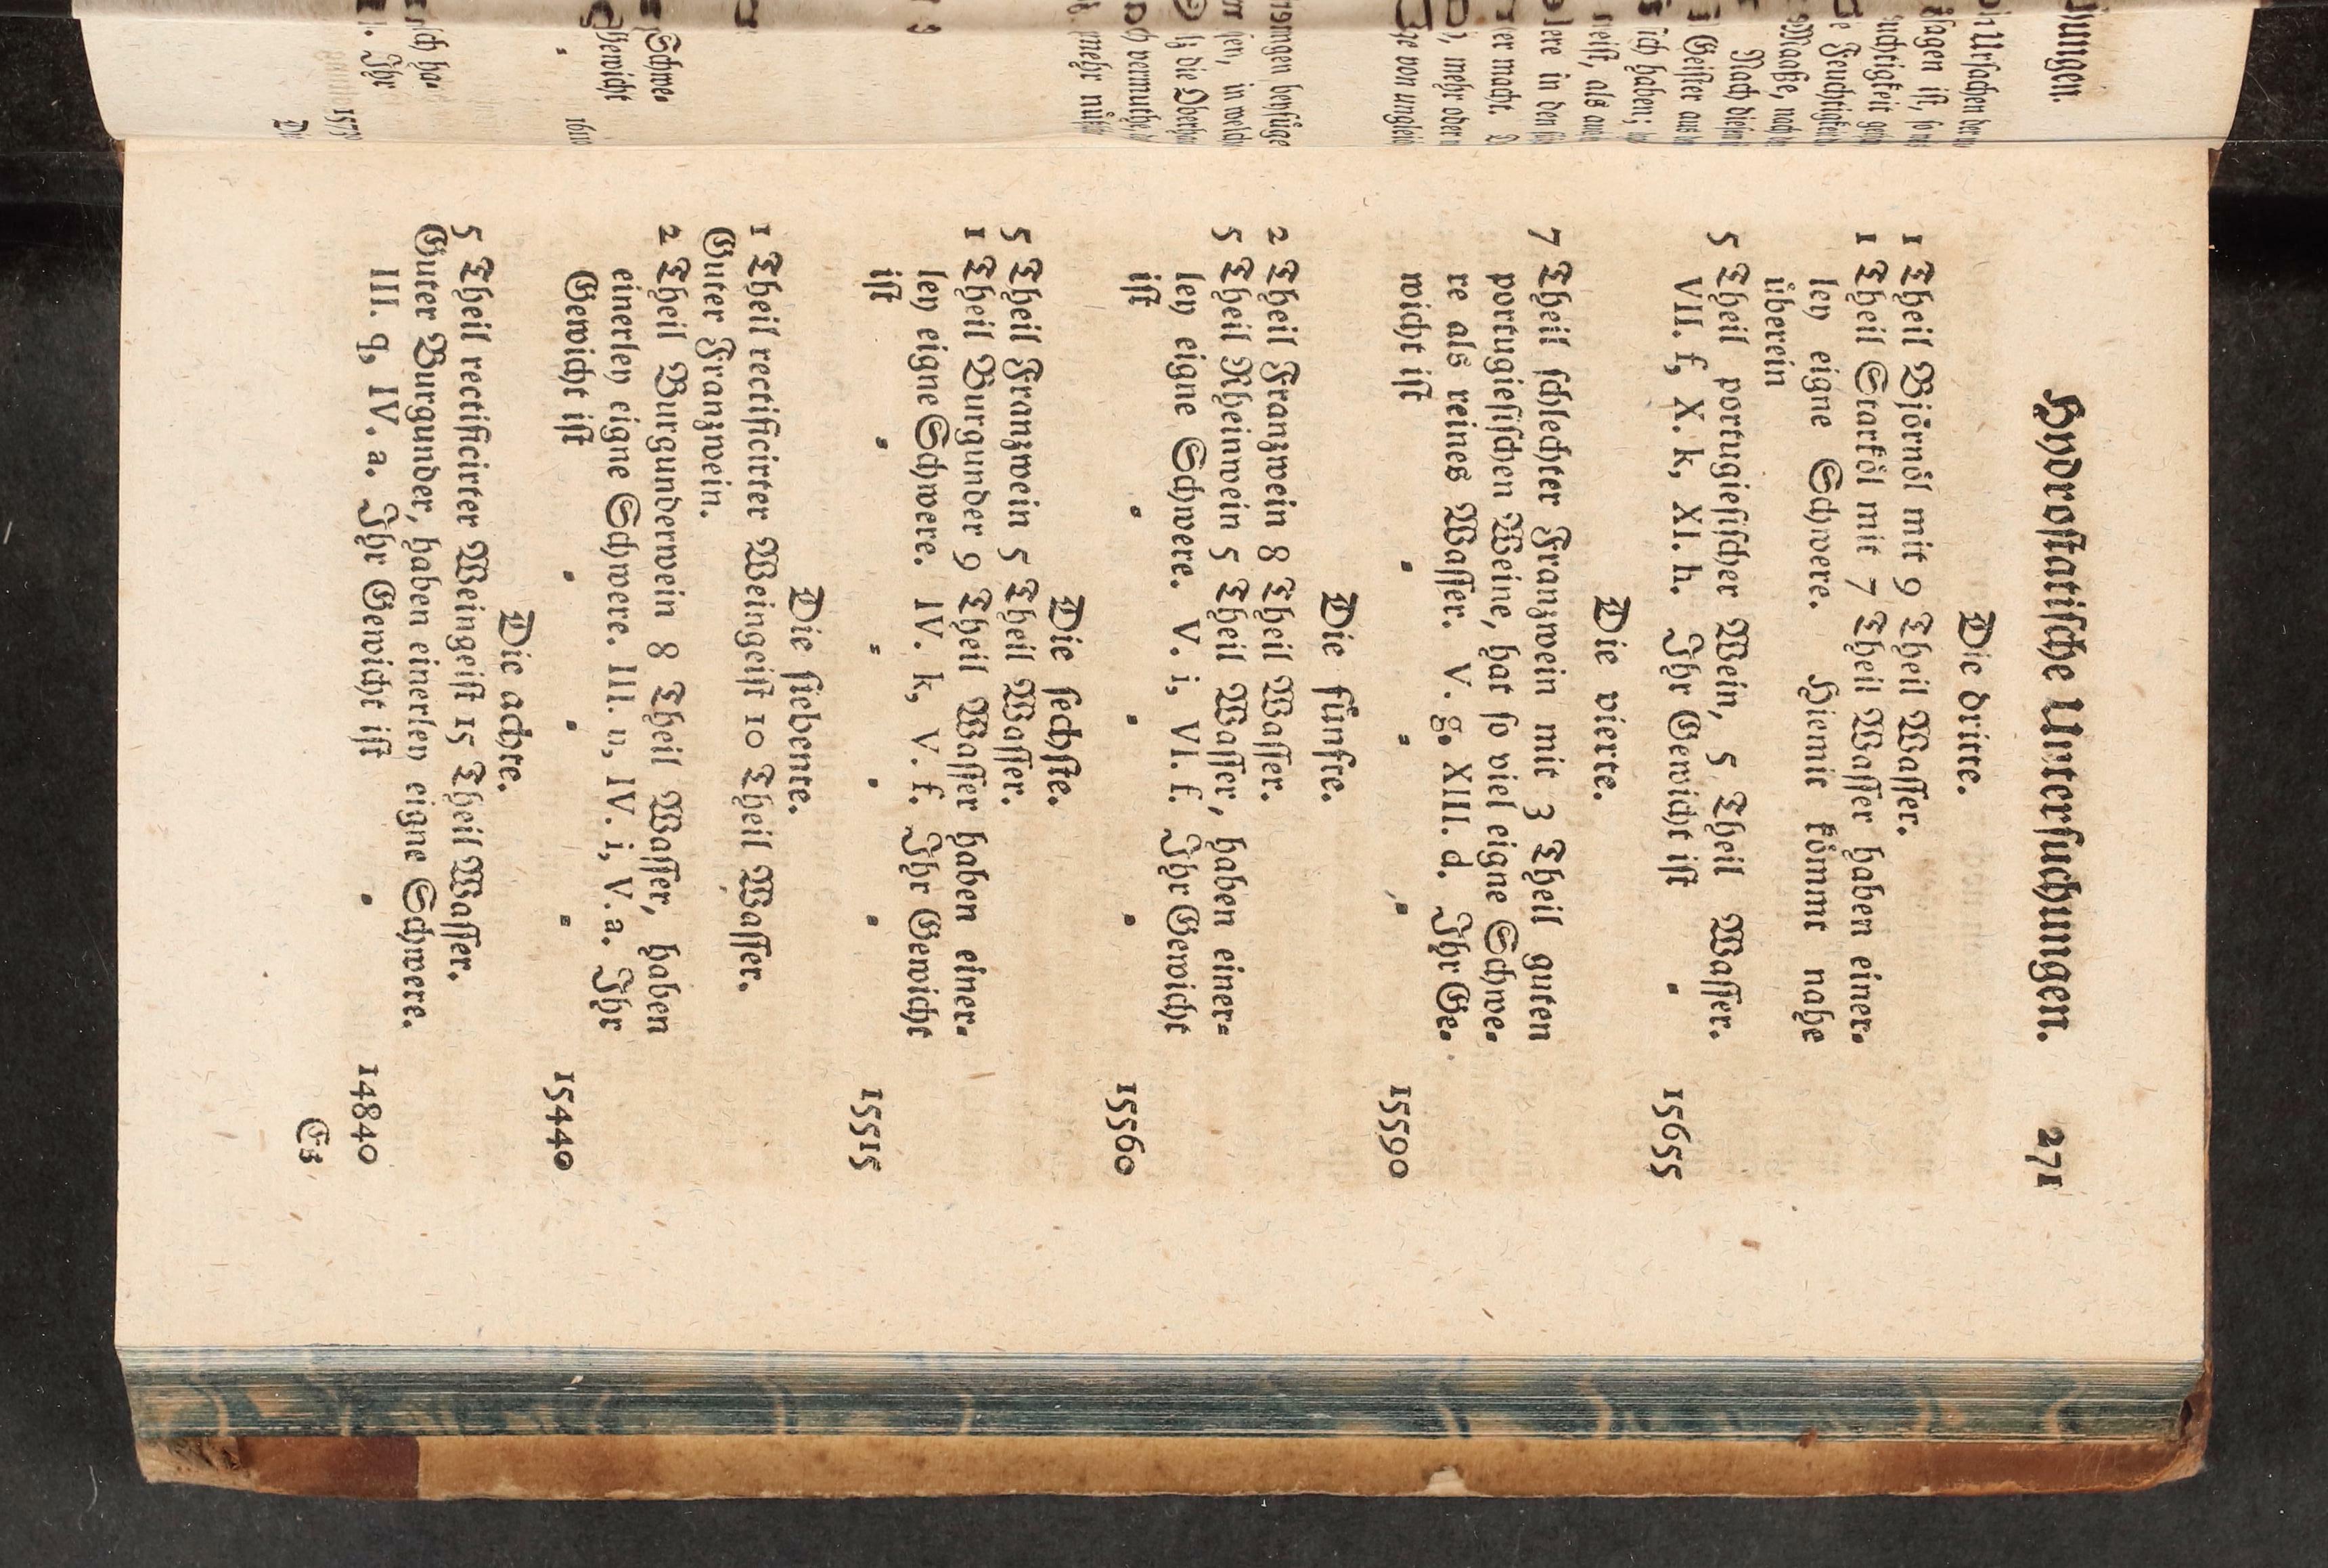 Hydrostatische Untersuchungen. 271
Die dritte.
1 Theil Björnöl mit 9 Theil Wasser.
1 Theil Starköl mit 7 Theil Wasser haben einer-
ley eigne Schwere. Hiemit kömmt nahe
überein
5 Theil portugiesischer Wein, 5 Theil Wasser.
VII. f, X. k, XI. h. Ihr Gewicht ist - 15655
Die vierte.
7 Theil schlechter Franzwein mit 3 Theil guten
portugiesischen Weine, hat so viel eigne Schwe-
re als reines Wasser. V. g. XIII. d. Ihr Ge-
wicht ist - - - 15590
Die fünfte.
2 Theil Franzwein 8 Theil Wasser.
5 Theil Rheinwein 5 Theil Wasser, haben einer-
ley eigne Schwere. V. i, VI. f. Ihr Gewicht
ist - - - 15560
Die sechste.
5 Theil Franzwein 5 Theil Wasser.
1 Theil Burgunder 9 Theil Wasser haben einer-
ley eigne Schwere. IV. k, V. f. Ihr Gewicht
ist - - - - 15515
Die siebente.
1 Theil rectificirter Weingeist 10 Theil Wasser.
Guter Franzwein.
2 Theil Burgunderwein 8 Theil Wasser, haben
einerley eigne Schwere. III. u, IV. i, V. a. Ihr
Gewicht ist - - - 15440
Die achte.
5 Theil rectificirter Weingeist 15 Theil Wasser.
Guter Burgunder, haben einerley eigne Schwere.
III. q, IV. a. Ihr Gewicht ist - 14840
Es